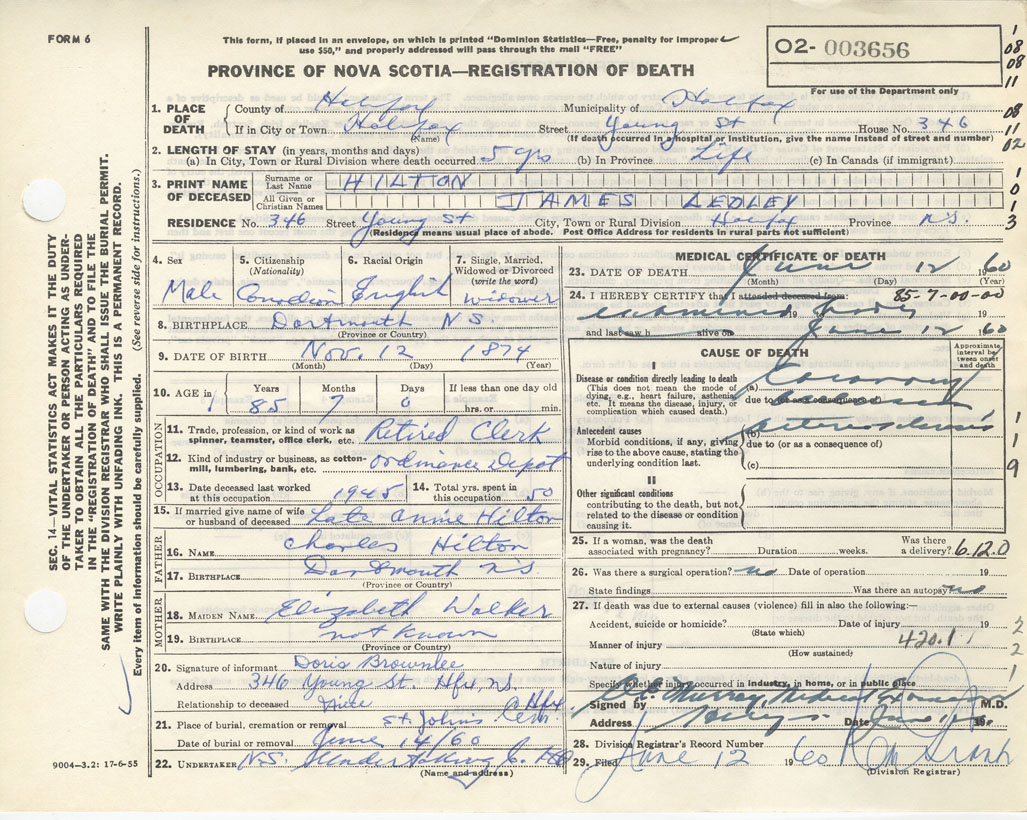 FORM 6
This form, if placed in an envelope, on which is printed "Dominion Statistics—Free, penalty for improper
use $50," and properly addressed will pass through the mail "FREE"
O2- 003656
For use of the Department only
PROVINCE OF NOVA SCOTIA—REGISTRATION OF DEATH
1. PLACE OF DEATH { County of Halifax Municipality of Halifax
If in City or Town Halifax Street Young St House No. 346
(Name) (If death occurred in a hospital or institution, give the name instead of street and number)
2. LENGTH OF STAY (in years, months and days)
(a) In City, Town or Rural Division where death occurred 5 yrs (b) In Province Life (c) In Canada (if immigrant)
3. PRINT NAME OF DECEASED
Surname or Last Name HILTON
All Given or Christian Names JAMES LEDLEY
RESIDENCE No. 346 Street Young St City, Town or Rural Division Halifax Province N.S.
(Residence means usual place of abode. Post Office Address for residents in rural parts not sufficient)
4. Sex Male
5. Citizenship (Nationality) Canadian
6. Racial Origin English
7. Single, Married, Widowed or Divorced (write the word) widower
8. BIRTHPLACE Dartmouth N.S.
(Province or Country)
9. DATE OF BIRTH Nov. 12 1874
(Month) (Day) (Year)
10. AGE in Years 85 Months 7 Days 0 If less than one day old hrs. or min.
OCCUPATION
11. Trade, profession, or kind of work as spinner, teamster, office clerk, etc. Retired Clerk
12. Kind of industry or business, as cotton-mill, lumbering, bank, etc. ordinance Depot
13. Date deceased last worked at this occupation 1945
14. Total yrs. spent in this occupation 50
15. If married give name of wife or husband of deceased Late Annie Hilton
FATHER
16. NAME Charles Hilton
17. BIRTHPLACE Dartmouth NS
(Province or Country)
MOTHER
18. MAIDEN NAME Elizabeth Walker
19. BIRTHPLACE not known
(Province or Country)
20. Signature of informant Doris Brownlee
Address 346 Young St. Hfx, N.S.
Relationship to deceased
21. Place of burial, cremation or removal St. John's Cem. Hfx
Date of burial or removal June 14/60
22. UNDERTAKER N.S. Undertaking Co.
(Name and address)
MEDICAL CERTIFICATE OF DEATH
23. DATE OF DEATH June 12 1960
(Month) (Day) (Year)
24. I HEREBY CERTIFY that I attended deceased from: 85-7-00-00
examined body 19
and last saw h alive on June 12 1960
CAUSE OF DEATH
Approximate interval between onset and death
I
Disease or condition directly leading to death
(This does not mean the mode of dying, e.g., heart failure, asthenia, etc. It means the disease, injury, or complication which caused death.)
(a) Coronary
due to (or as a consequence of)
Antecedent causes
Morbid conditions, if any, giving rise to the above cause, stating the underlying condition last.
(b) arteriosclerosis
due to (or as a consequence of)
(c)
II
Other significant conditions
contributing to the death, but not related to the disease or condition causing it.
25. If a woman, was the death associated with pregnancy? Duration weeks. Was there a delivery? 6.12.0
26. Was there a surgical operation? no Date of operation 19
State findings Was there an autopsy? no
27. If death was due to external causes (violence) fill in also the following:—
Accident, suicide or homicide? Date of injury 19
(State which)
Manner of injury 420.1
(How sustained)
Nature of injury
Specify whether injury occurred in industry, in home, or in public place
Signed by Murray, Medical M.D.
Address Date June 19
28. Division Registrar's Record Number
29. Filed June 12 1960
(Division Registrar)
SEC. 14—VITAL STATISTICS ACT MAKES IT THE DUTY
OF THE UNDERTAKER OR PERSON ACTING AS UNDER-
TAKER TO OBTAIN ALL THE PARTICULARS REQUIRED
IN THE "REGISTRATION OF DEATH" AND TO FILE THE
SAME WITH THE DIVISION REGISTRAR WHO SHALL ISSUE THE BURIAL PERMIT.
WRITE PLAINLY WITH UNFADING INK. THIS IS A PERMANENT RECORD.
Every item of information should be carefully supplied. (See reverse side for instructions.)
9004-3.2: 17-6-55
1
08
08
11
08
11
02
1
0
1
3
1
1
9
2
2
1